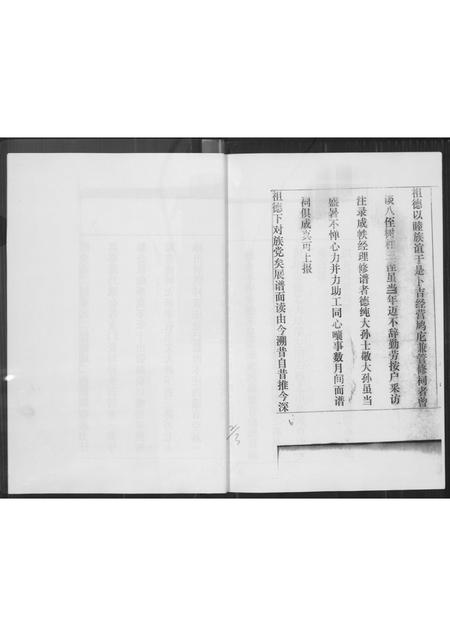 祖德以睦族谊于是卜吉经营鸠庀兼管修祠者曾
八侄树 侄虽当年迈不辞勤劳按户采访
注录成帙经理修谱者德纯大孙士敬大孙虽当
盛暑不惮心力并力助工同心襄事数月间而谱
祠俱成 可上报
祖德下对族党矣展谱而读由今溯昔自昔推今深
2/3